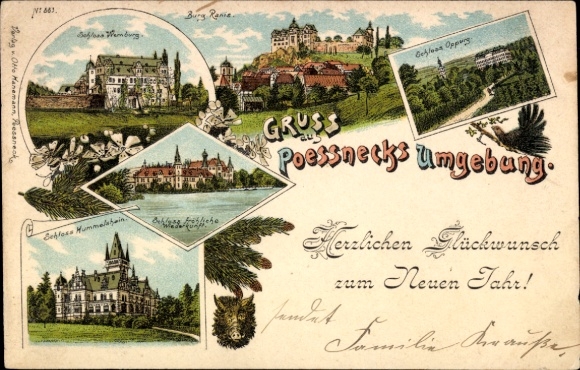 No 661.
Schloss Wernburg.
Burg Ranis.
Schloss Oppurg.
Verlag v. Otto Hünemann, Poessneck.
GRUSS aus
POESSNECKS UMGEBUNG.
Schloss Fröhliche
Wiederkunft.
Schloss Hummelshain.
Herzlichen Glückwunsch
zum Neuen Jahr!
sendet
Familie Krauße.